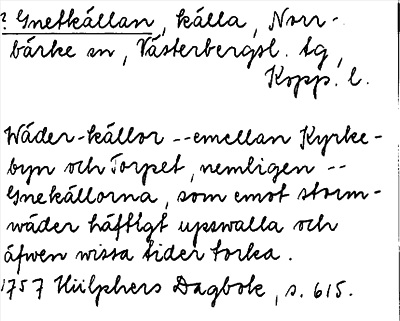 ? Gnetkällan, källa, Norr-
bärke sn, Västerbergsl. tg,
Kopp. l.
Wäder-källor -- emellan Kyrke-
byn och Torpet, nemligen --
Gnekällorna, som emot storm-
wäder häftigt upswalla och
äfwen wissa tider torka.
1757 Hülphers Dagbok, s. 615.